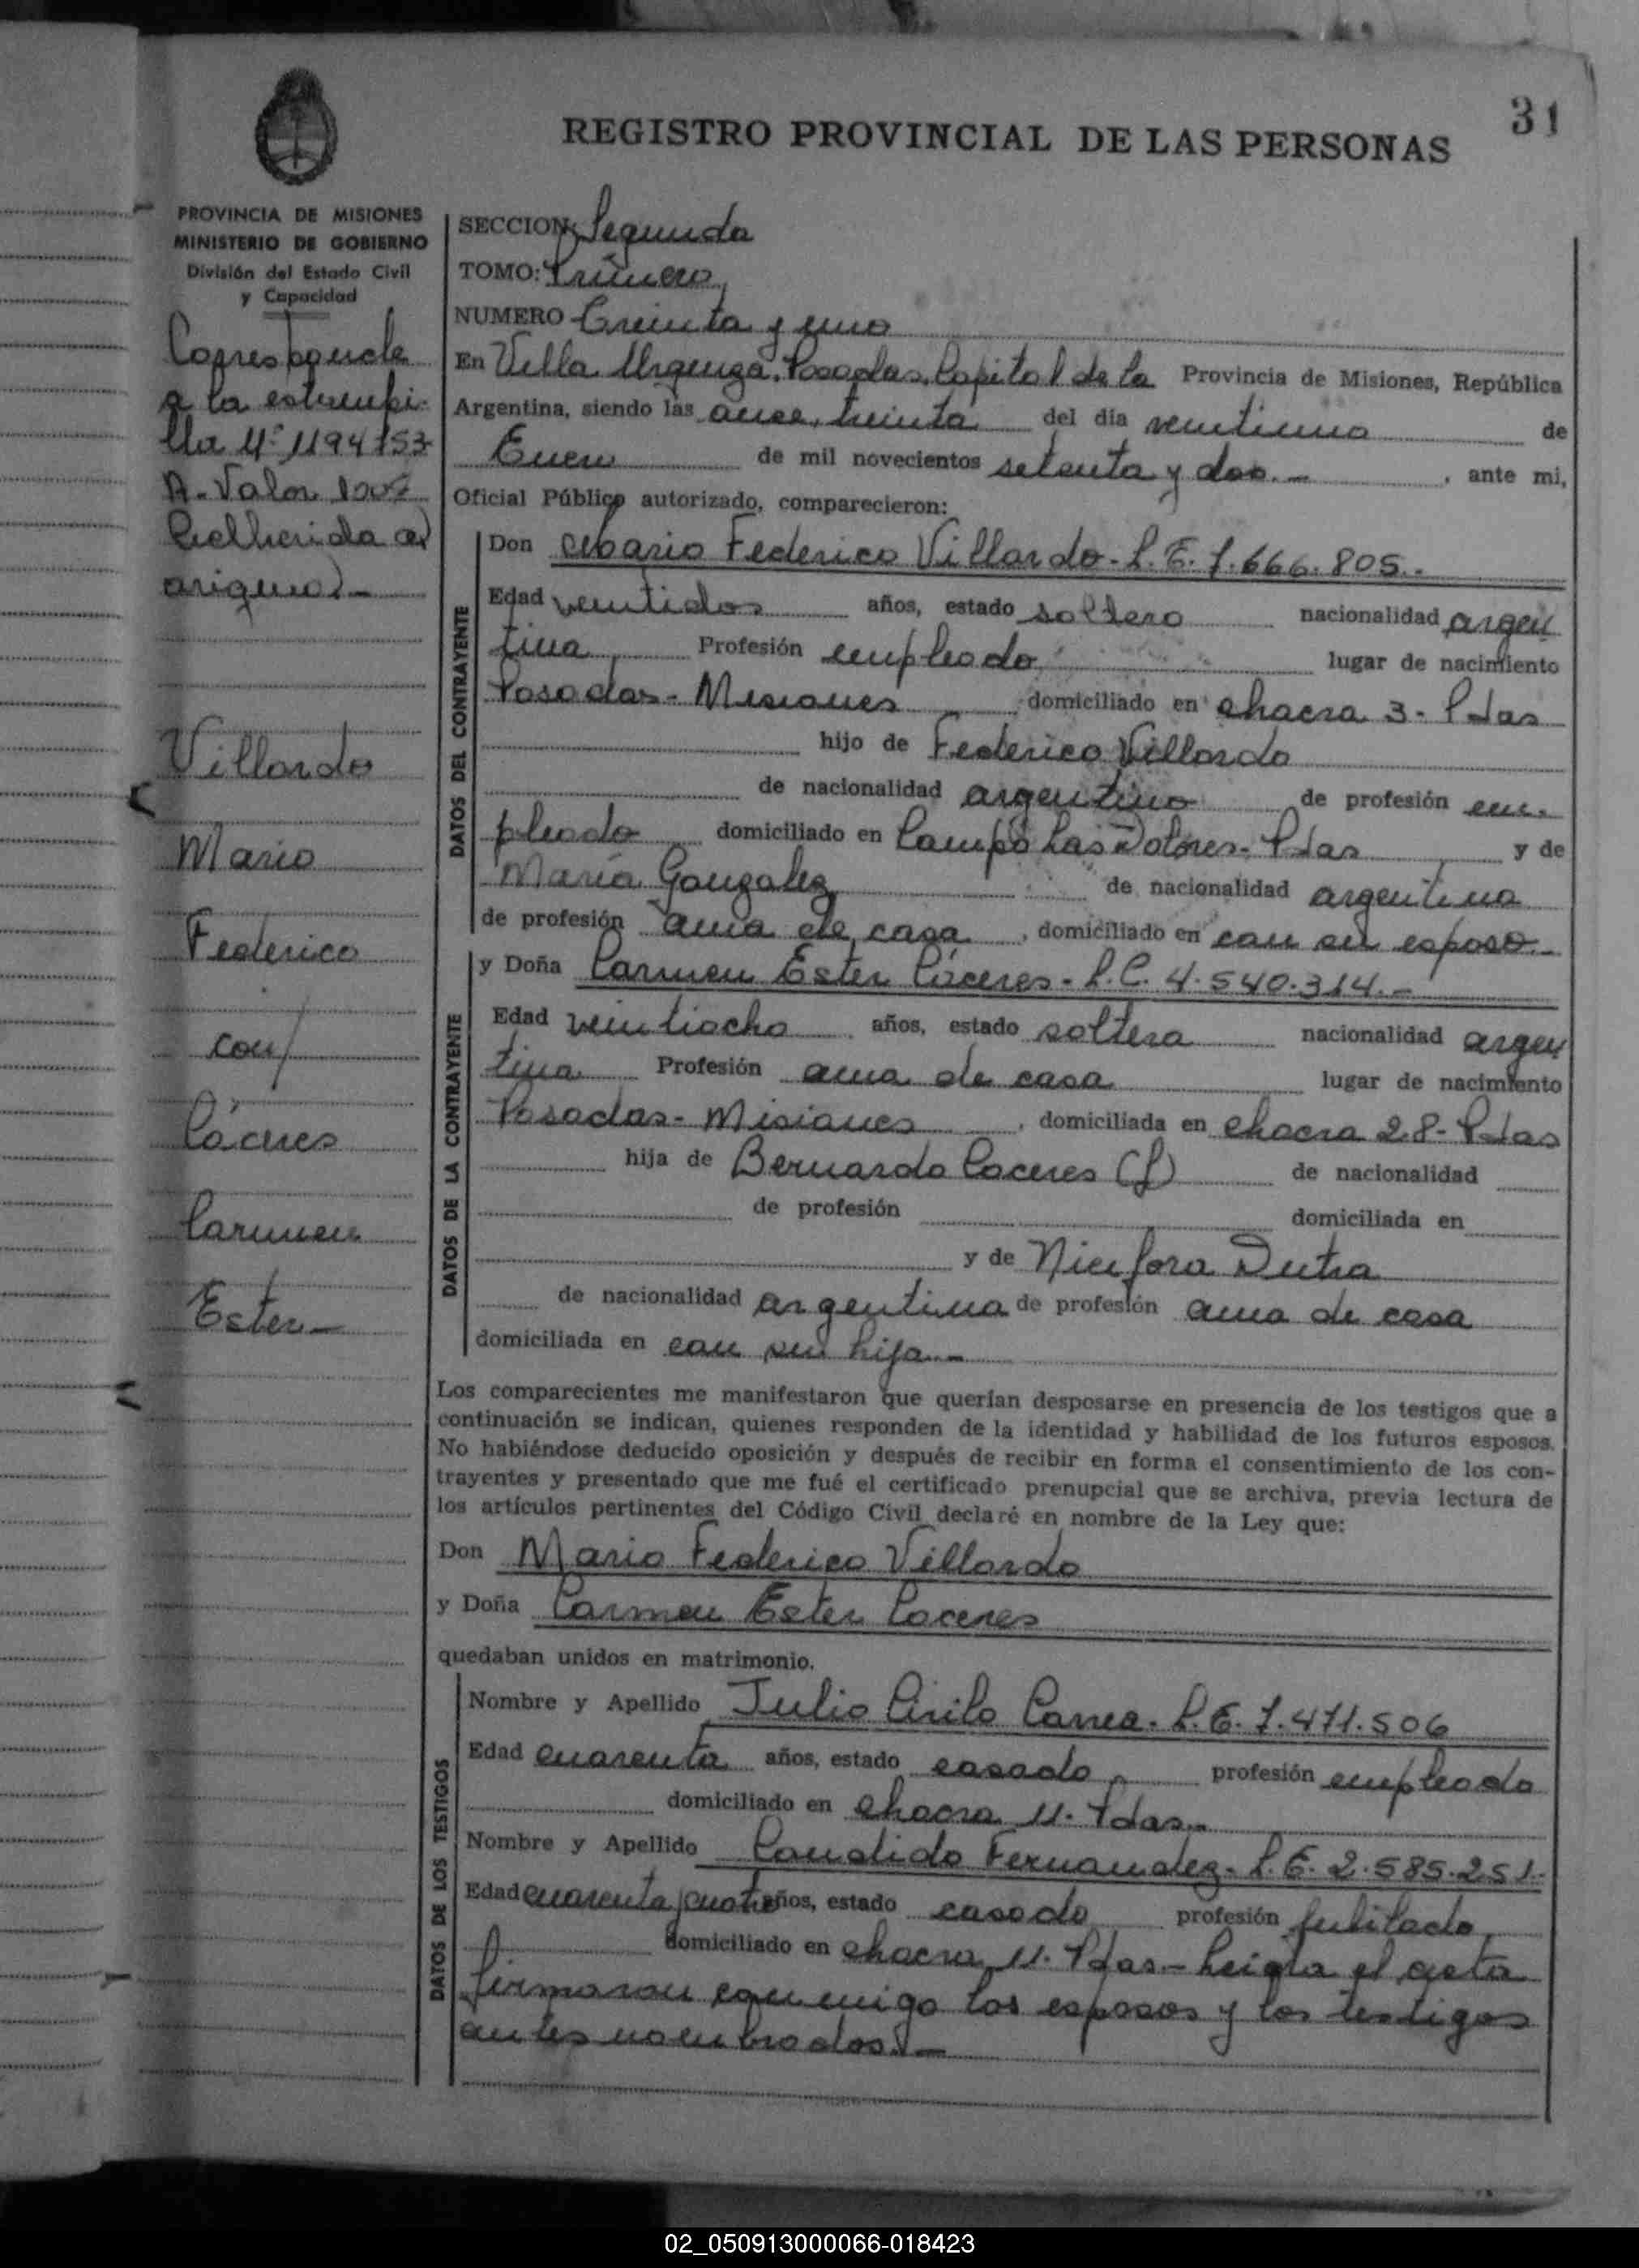 31
REGISTRO PROVINCIAL DE LAS PERSONAS
PROVINCIA DE MISIONES
MINISTERIO DE GOBIERNO
División del Estado Civil
y Capacidad
Corresponde
a la estampi-
lla Nº 1194153
A. Valor
adherida al
original.-
Villordo
Mario
Federico
con/
Cáceres
Carmen
Ester.-
SECCION: Segunda
TOMO: Primero
NUMERO Treinta y uno
En Villa Urquiza, Posadas, Capital de la Provincia de Misiones, República
Argentina, siendo las once, treinta del día veintiuno de
Enero de mil novecientos setenta y dos.- , ante mi,
Oficial Público autorizado, comparecieron:
DATOS DEL CONTRAYENTE
Don Mario Federico Villordo - L.E. 7.666.805.-
Edad veintidos años, estado soltero nacionalidad argen
tina Profesión empleado lugar de nacimiento
Posadas - Misiones , domiciliado en chacra 3 - Pdas
hijo de Federico Villordo
de nacionalidad argentino de profesión em-
pleado domiciliado en Campo Las Dolores - Pdas y de
María Gonzalez de nacionalidad argentina
de profesión ama de casa , domiciliado en con su esposo.-
DATOS DE LA CONTRAYENTE
y Doña Carmen Ester Cáceres - L.C. 4.540.314.-
Edad veintiocho años, estado soltera nacionalidad argen
tina Profesión ama de casa lugar de nacimiento
Posadas - Misiones , domiciliada en chacra 28 - Pdas
hija de Bernardo Caceres (f) de nacionalidad
de profesión domiciliada en
y de Nicefora Dutra
de nacionalidad argentina de profesión ama de casa
domiciliada en con su hija.-
Los comparecientes me manifestaron que querían desposarse en presencia de los testigos que a
continuación se indican, quienes responden de la identidad y habilidad de los futuros esposos.
No habiéndose deducido oposición y después de recibir en forma el consentimiento de los con-
trayentes y presentado que me fué el certificado prenupcial que se archiva, previa lectura de
los artículos pertinentes del Código Civil declaré en nombre de la Ley que:
Don Mario Federico Villordo
y Doña Carmen Ester Caceres
quedaban unidos en matrimonio.
DATOS DE LOS TESTIGOS
Nombre y Apellido Julio Cirilo Correa - L.E. 7.471.506
Edad cuarenta años, estado casado profesión empleado
domiciliado en chacra 11 - Pdas.-
Nombre y Apellido Candido Fernandez - L.E. 2.585.251.-
Edad cuarenta y cuatro años, estado casado profesión jubilado
domiciliado en chacra 11 - Pdas.- Leida el acta
firmaron conmigo los esposos y los testigos
antes nombrados.-
02_050913000066-018423